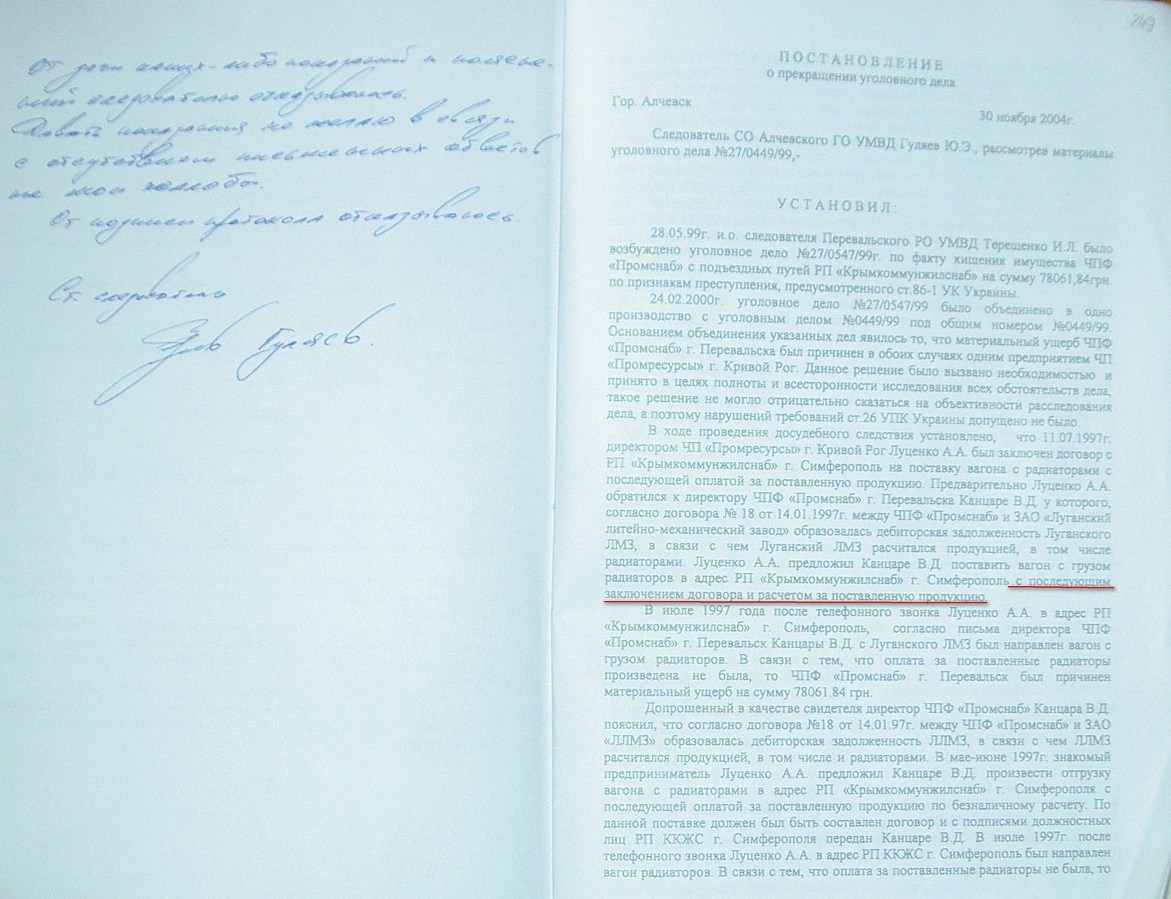 От дачи каких-либо показаний и поясне-
ний следователю отказываюсь.
Давать показания не желаю в связи
с отсутствием письменных ответов
на мои жалобы.
От подписи протокола отказываюсь.
Ст. следователь
Гуляев.
249
ПОСТАНОВЛЕНИЕ
о прекращении уголовного дела.
Гор. Алчевск
30 ноября 2004г.
Следователь СО Алчевского ГО УМВД Гуляев Ю.Э., рассмотрев материалы
уголовного дела №27/0449/99,-
УСТАНОВИЛ:
28.05.99г. и.о. следователя Перевальского РО УМВД Терещенко И.Л. было
возбуждено уголовное дело №27/0547/99г. по факту хищения имущества ЧПФ
«Промснаб» с подъездных путей РП «Крымкоммунжилснаб» на сумму 78061,84грн.
по признакам преступления, предусмотренного ст.86-1 УК Украины.
24.02.2000г. уголовное дело №27/0547/99 было объединено в одно
производство с уголовным делом №0449/99 под общим номером №0449/99.
Основанием объединения указанных дел явилось то, что материальный ущерб ЧПФ
«Промснаб» г. Перевальска был причинен в обоих случаях одним предприятием ЧП
«Промресурсы» г. Кривой Рог. Данное решение было вызвано необходимостью и
принято в целях полноты и всесторонности исследования всех обстоятельств дела,
такое решение не могло отрицательно сказаться на объективности расследования
дела, а поэтому нарушений требований ст.26 УПК Украины допущено не было.
В ходе проведения досудебного следствия установлено, что 11.07.1997г.
директором ЧП «Промресурсы» г. Кривой Рог Луценко А.А. был заключен договор с
РП «Крымкоммунжилснаб» г. Симферополь на поставку вагона с радиаторами с
последующей оплатой за поставленную продукцию. Предварительно Луценко А.А.
обратился к директору ЧПФ «Промснаб» г. Перевальска Канцаре В.Д. у которого,
согласно договора № 18 от 14.01.1997г. между ЧПФ «Промснаб» и ЗАО «Луганский
литейно-механический завод» образовалась дебиторская задолженность Луганского
ЛМЗ, в связи с чем Луганский ЛМЗ расчитался продукцией, в том числе
радиаторами. Луценко А.А. предложил Канцаре В.Д. поставить вагон с грузом
радиаторов в адрес РП «Крымкоммунжилснаб» г. Симферополь с последующим
заключением договора и расчетом за поставленную продукцию.
В июле 1997 года после телефонного звонка Луценко А.А. в адрес РП
«Крымкоммунжилснаб» г. Симферополь, согласно письма директора ЧПФ
«Промснаб» г. Перевальск Канцары В.Д. с Луганского ЛМЗ был направлен вагон с
грузом радиаторов. В связи с тем, что оплата за поставленные радиаторы
произведена не была, то ЧПФ «Промснаб» г. Перевальск был причинен
материальный ущерб на сумму 78061.84 грн.
Допрошенный в качестве свидетеля директор ЧПФ «Промснаб» Канцара В.Д.
пояснил, что согласно договора №18 от 14.01.97г. между ЧПФ «Промснаб» и ЗАО
«ЛЛМЗ» образовалась дебиторская задолженность ЛЛМЗ, в связи с чем ЛЛМЗ
расчитался продукцией, в том числе и радиаторами. В мае-июне 1997г. знакомый
предприниматель Луценко А.А. предложил Канцаре В.Д. произвести отгрузку
вагона с радиаторами в адрес РП «Крымкоммунжилснаб» г. Симферополя с
последующей оплатой за поставленную продукцию по безналичному расчету. По
данной поставке должен был быть составлен договор и с подписями должностных
лиц РП ККЖС г. Симферополя передан Канцаре В.Д. В июле 1997г. после
телефонного звонка Луценко А.А. в адрес РП ККЖС г. Симферополь был направлен
вагон радиаторов. В связи с тем, что оплата за поставленные радиаторы не была, то